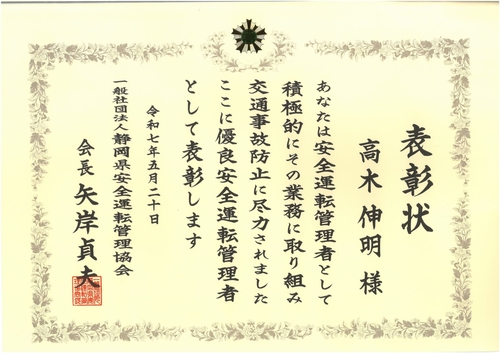 表彰状
高木伸明様
あなたは安全運転管理者として
積極的にその業務に取り組み
交通事故防止に尽力されました
ここに優良安全運転管理者
として表彰します
令和七年五月二十日
一般社団法人静岡県安全運転管理協会
会長 矢岸貞夫